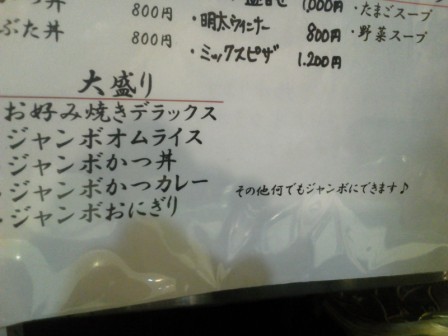 丼 800円
ぶた丼 800円
1,000円
・明太ウインナー 800円
・ミックスピザ 1,200円
・たまごスープ
・野菜スープ
大盛り
お好み焼きデラックス
・ジャンボオムライス
・ジャンボかつ丼
・ジャンボかつカレー
・ジャンボおにぎり
その他何でもジャンボにできます♪